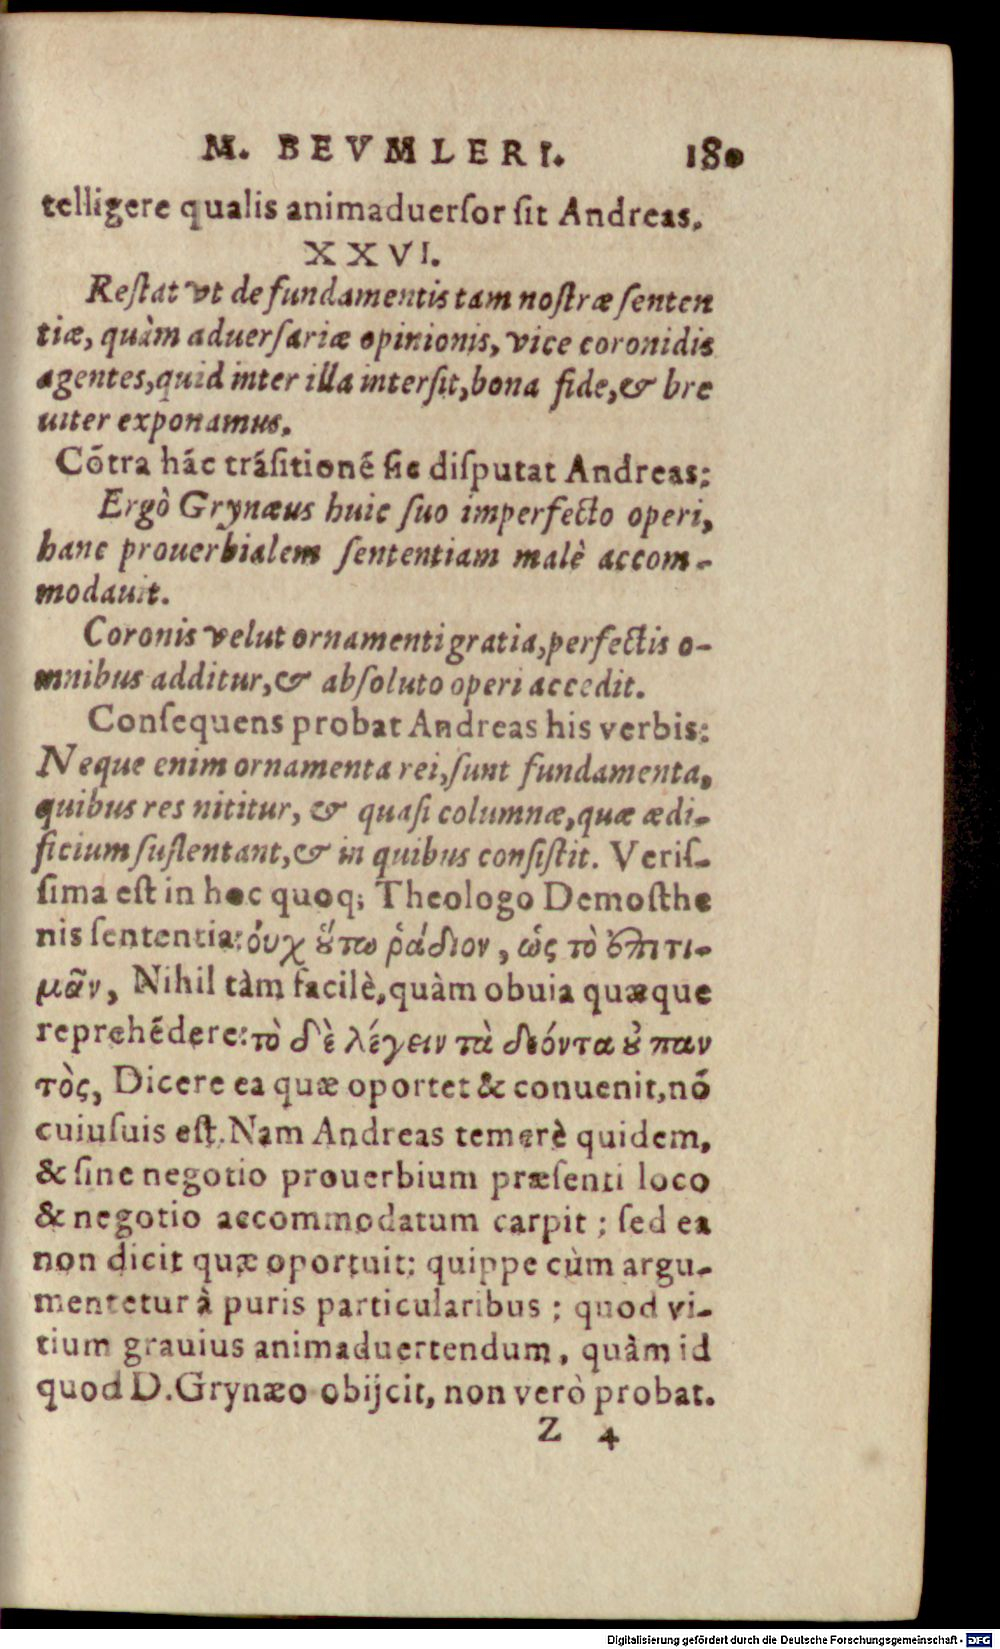 M. BEVMLERI. 180
telligere qualis animaduerſor ſit Andreas.
XXVI.
Reſtat vt de fundamentis tam noſtræ ſenten
tiæ, quàm aduerſariæ opinionis, vice coronidis
agentes, quid inter illa interſit, bona fide, & bre
uiter exponamus.
Cõtra hãc trãſitionẽ ſic diſputat Andreas:
Ergò Grynæus huic ſuo imperfecto operi,
hanc prouerbialem ſententiam malè accom-
modauit.
Coronis velut ornamenti gratia, perfectis o-
mnibus additur, & abſoluto operi accedit.
Conſequens probat Andreas his verbis:
Neque enim ornamenta rei, ſunt fundamenta,
quibus res nititur, & quaſi columnæ, quæ ædi-
ficium ſuſtentant, & in quibus conſiſtit. Veriſ-
ſima eſt in hoc quoq; Theologo Demoſthe
nis ſententia: ὀυχ ὅυτω ῥάδιον, ὡς τὸ ἐπιτι-
μᾶν, Nihil tàm facilè, quàm obuia quæque
reprehẽdere: τὸ δὲ λέγειν τὰ δεόντα ȣ̓ παν
τὸς, Dicere ea quæ oportet & conuenit, nõ
cuiuſuis eſt. Nam Andreas temerè quidem,
& ſine negotio prouerbium præſenti loco
& negotio accommodatum carpit; ſed ea
non dicit quæ oportuit: quippe cùm argu-
mentetur à puris particularibus; quod vi-
tium grauius animaduertendum, quàm id
quod D. Grynæo obijcit, non verò probat.
Z 4
Digitalisierung gefördert durch die Deutsche Forschungsgemeinschaft - DFG